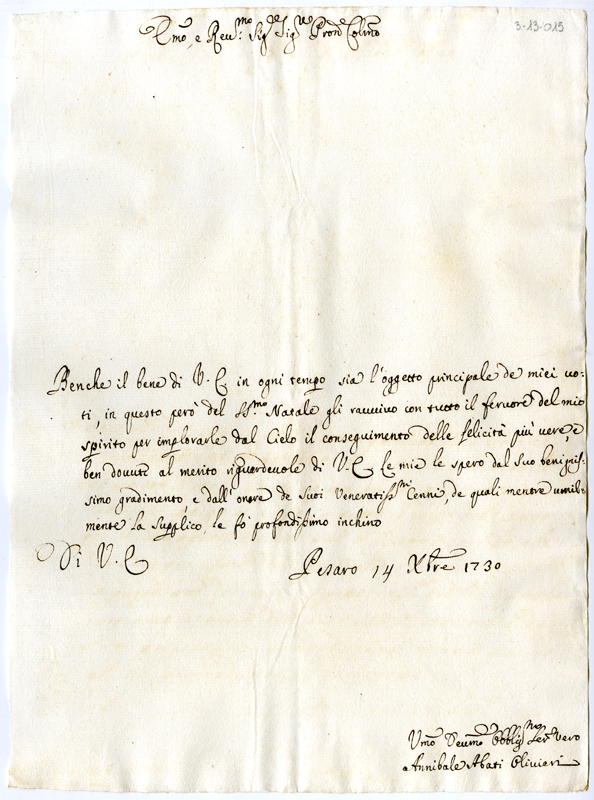 3-13-015
Emo, e Reumo: Sigre Sigre Prone Colmo
Benche il bene di V. E in ogni tempo sia l'oggetto principale de miei uo:
ti, in questo però del SSmo Natale gli rauuiuo con tutto il feruore del mio
spirito per implorarle dal Cielo il conseguimento delle felicità più uere, e
ben douute al merito riguardeuole di V. E Le mie le spero dal suo benignis:
simo gradimento, e dall'onore de suoi Veneratissmi Cenni, de quali mentre umil:
mente la supplico, le fò profondissimo inchino
Di V. E
Pesaro 14 Xbre 1730
Umo Deumo Obbligmo Seruo Vero
Annibale Abati Olivieri